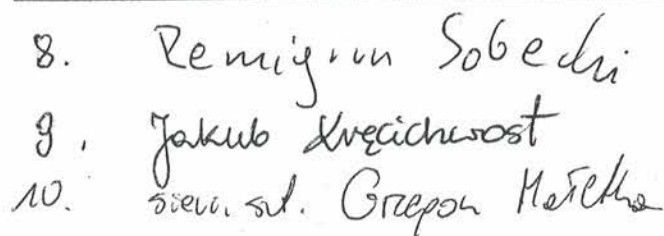 8. Remigiusz Sobecki
9. Jakub Kręcichwost
10. sierż. szt. Grzegorz Małetka